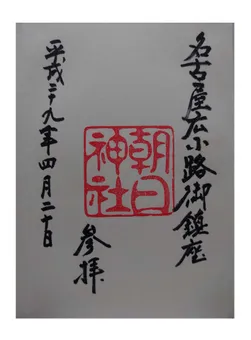 名古屋広小路御鎮座
朝日神社
参拝
平成二九年四月二十日